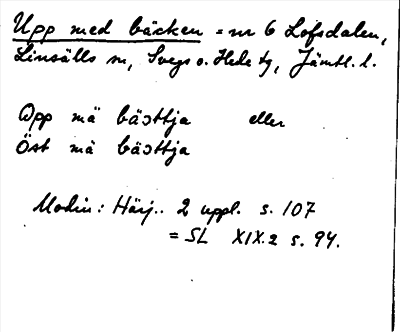 Upp med bäcken = nr 6 Lofsdalen,
Linsälls sn, Svegs o. Hede tg, Jämtl. l.
Opp mä bästtja eller
Öst mä bästtja
Modin: Härj.. 2 uppl. s. 107
= SL XIX.2 s. 94.